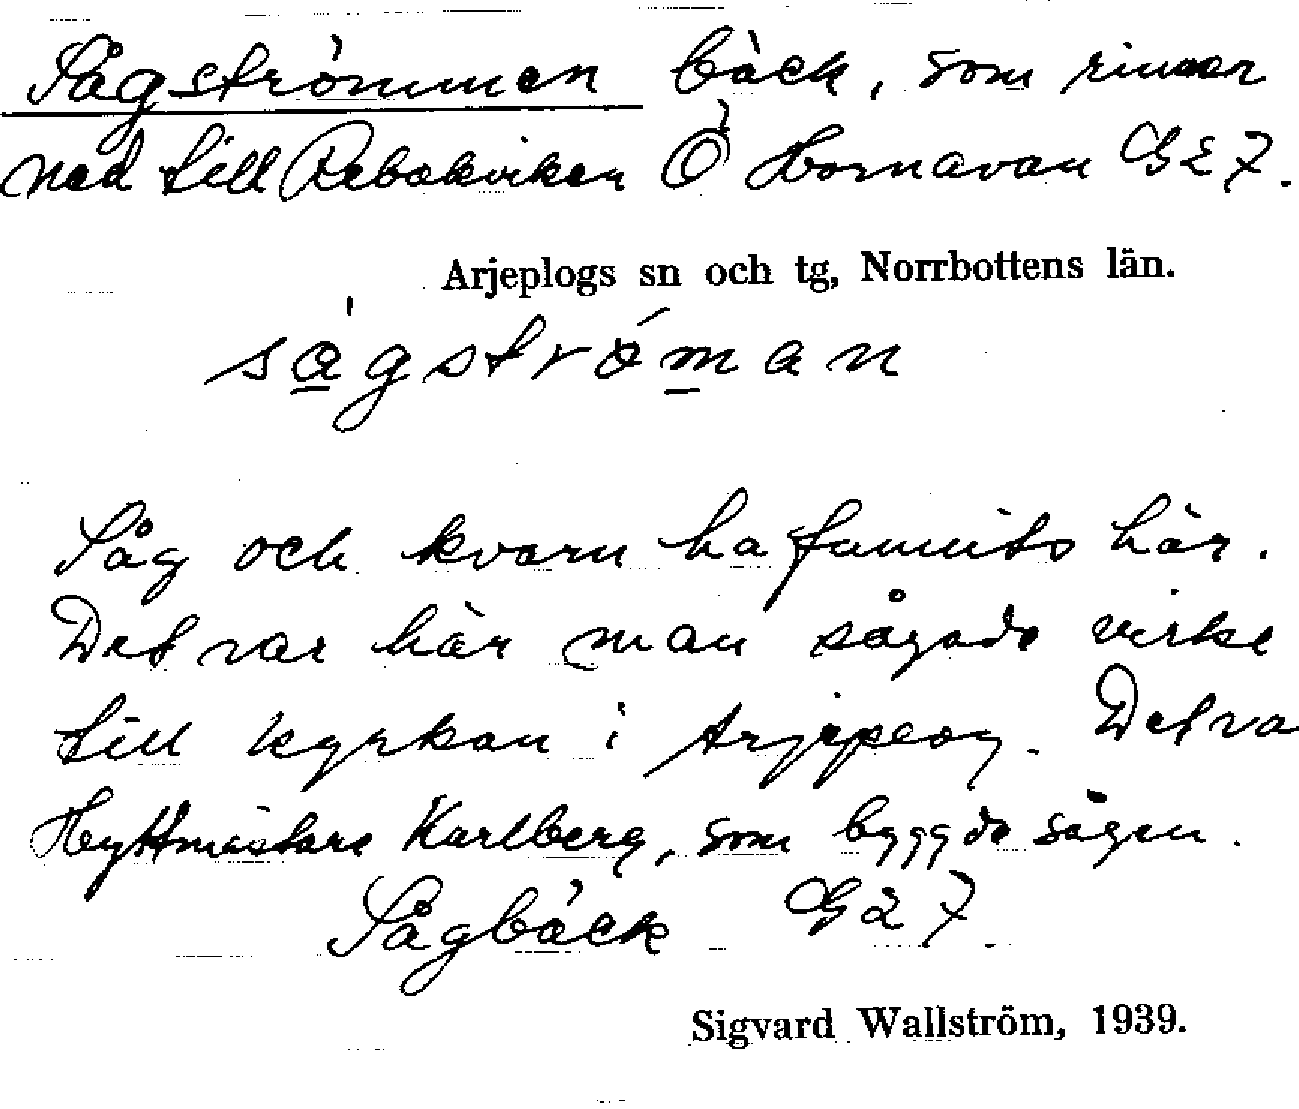 Sågströmmen bäck, som rinner
ned till Rebakviken Ö Hornavan G27.
Arjeplogs sn och tg, Norrbottens län.
sågströman
Såg och kvarn ha funnits här.
Det var här man sågade virke
till kyrkan i Arjeplog. Det va
Hyttmästare Karlberg, som byggde sågen.
Sågbäck G27.
Sigvard Wallström, 1939.